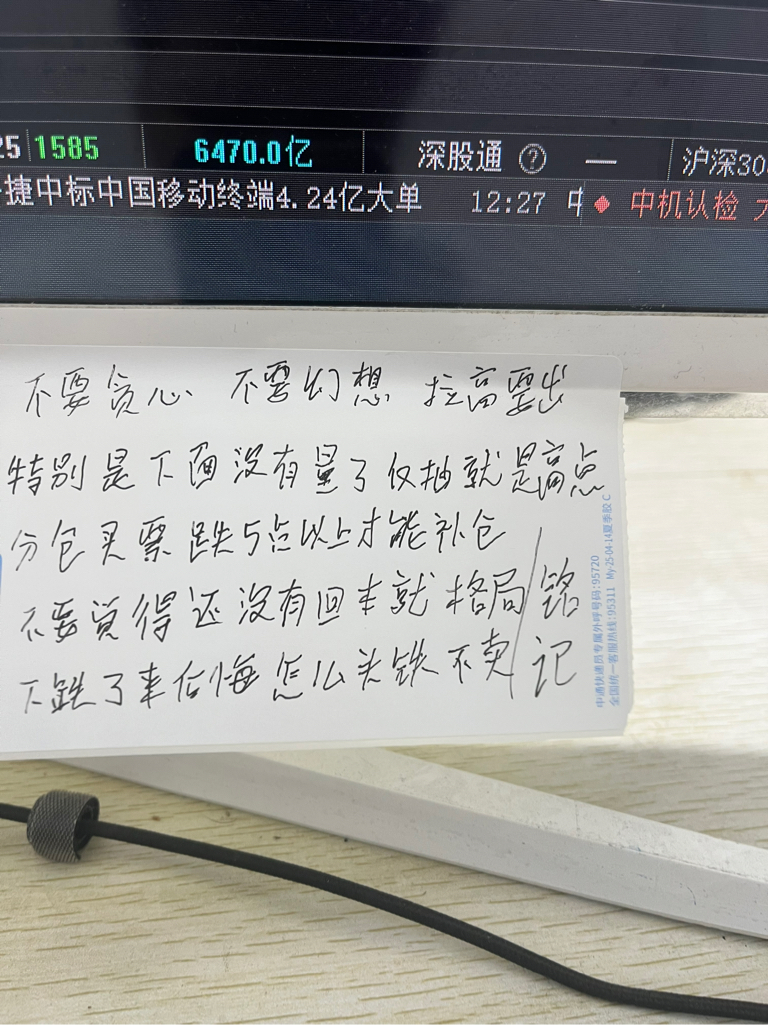 25 1585 6470.0亿 深股通 ? — 沪深30
捷中标中国移动终端4.24亿大单 12:27 中 ◆ 中机认检
不要贪心 不要幻想 拉高要出
特别是下面没有量了 仅抽就是高点
分仓买票 跌5点以上才能补仓
不要觉得还没有回本就格局
下跌了来后悔怎么头铁不卖
铭记
中通快递员专属外呼号码:95720
全国统一客服热线:95311 My-25-04-14夏季胶 C